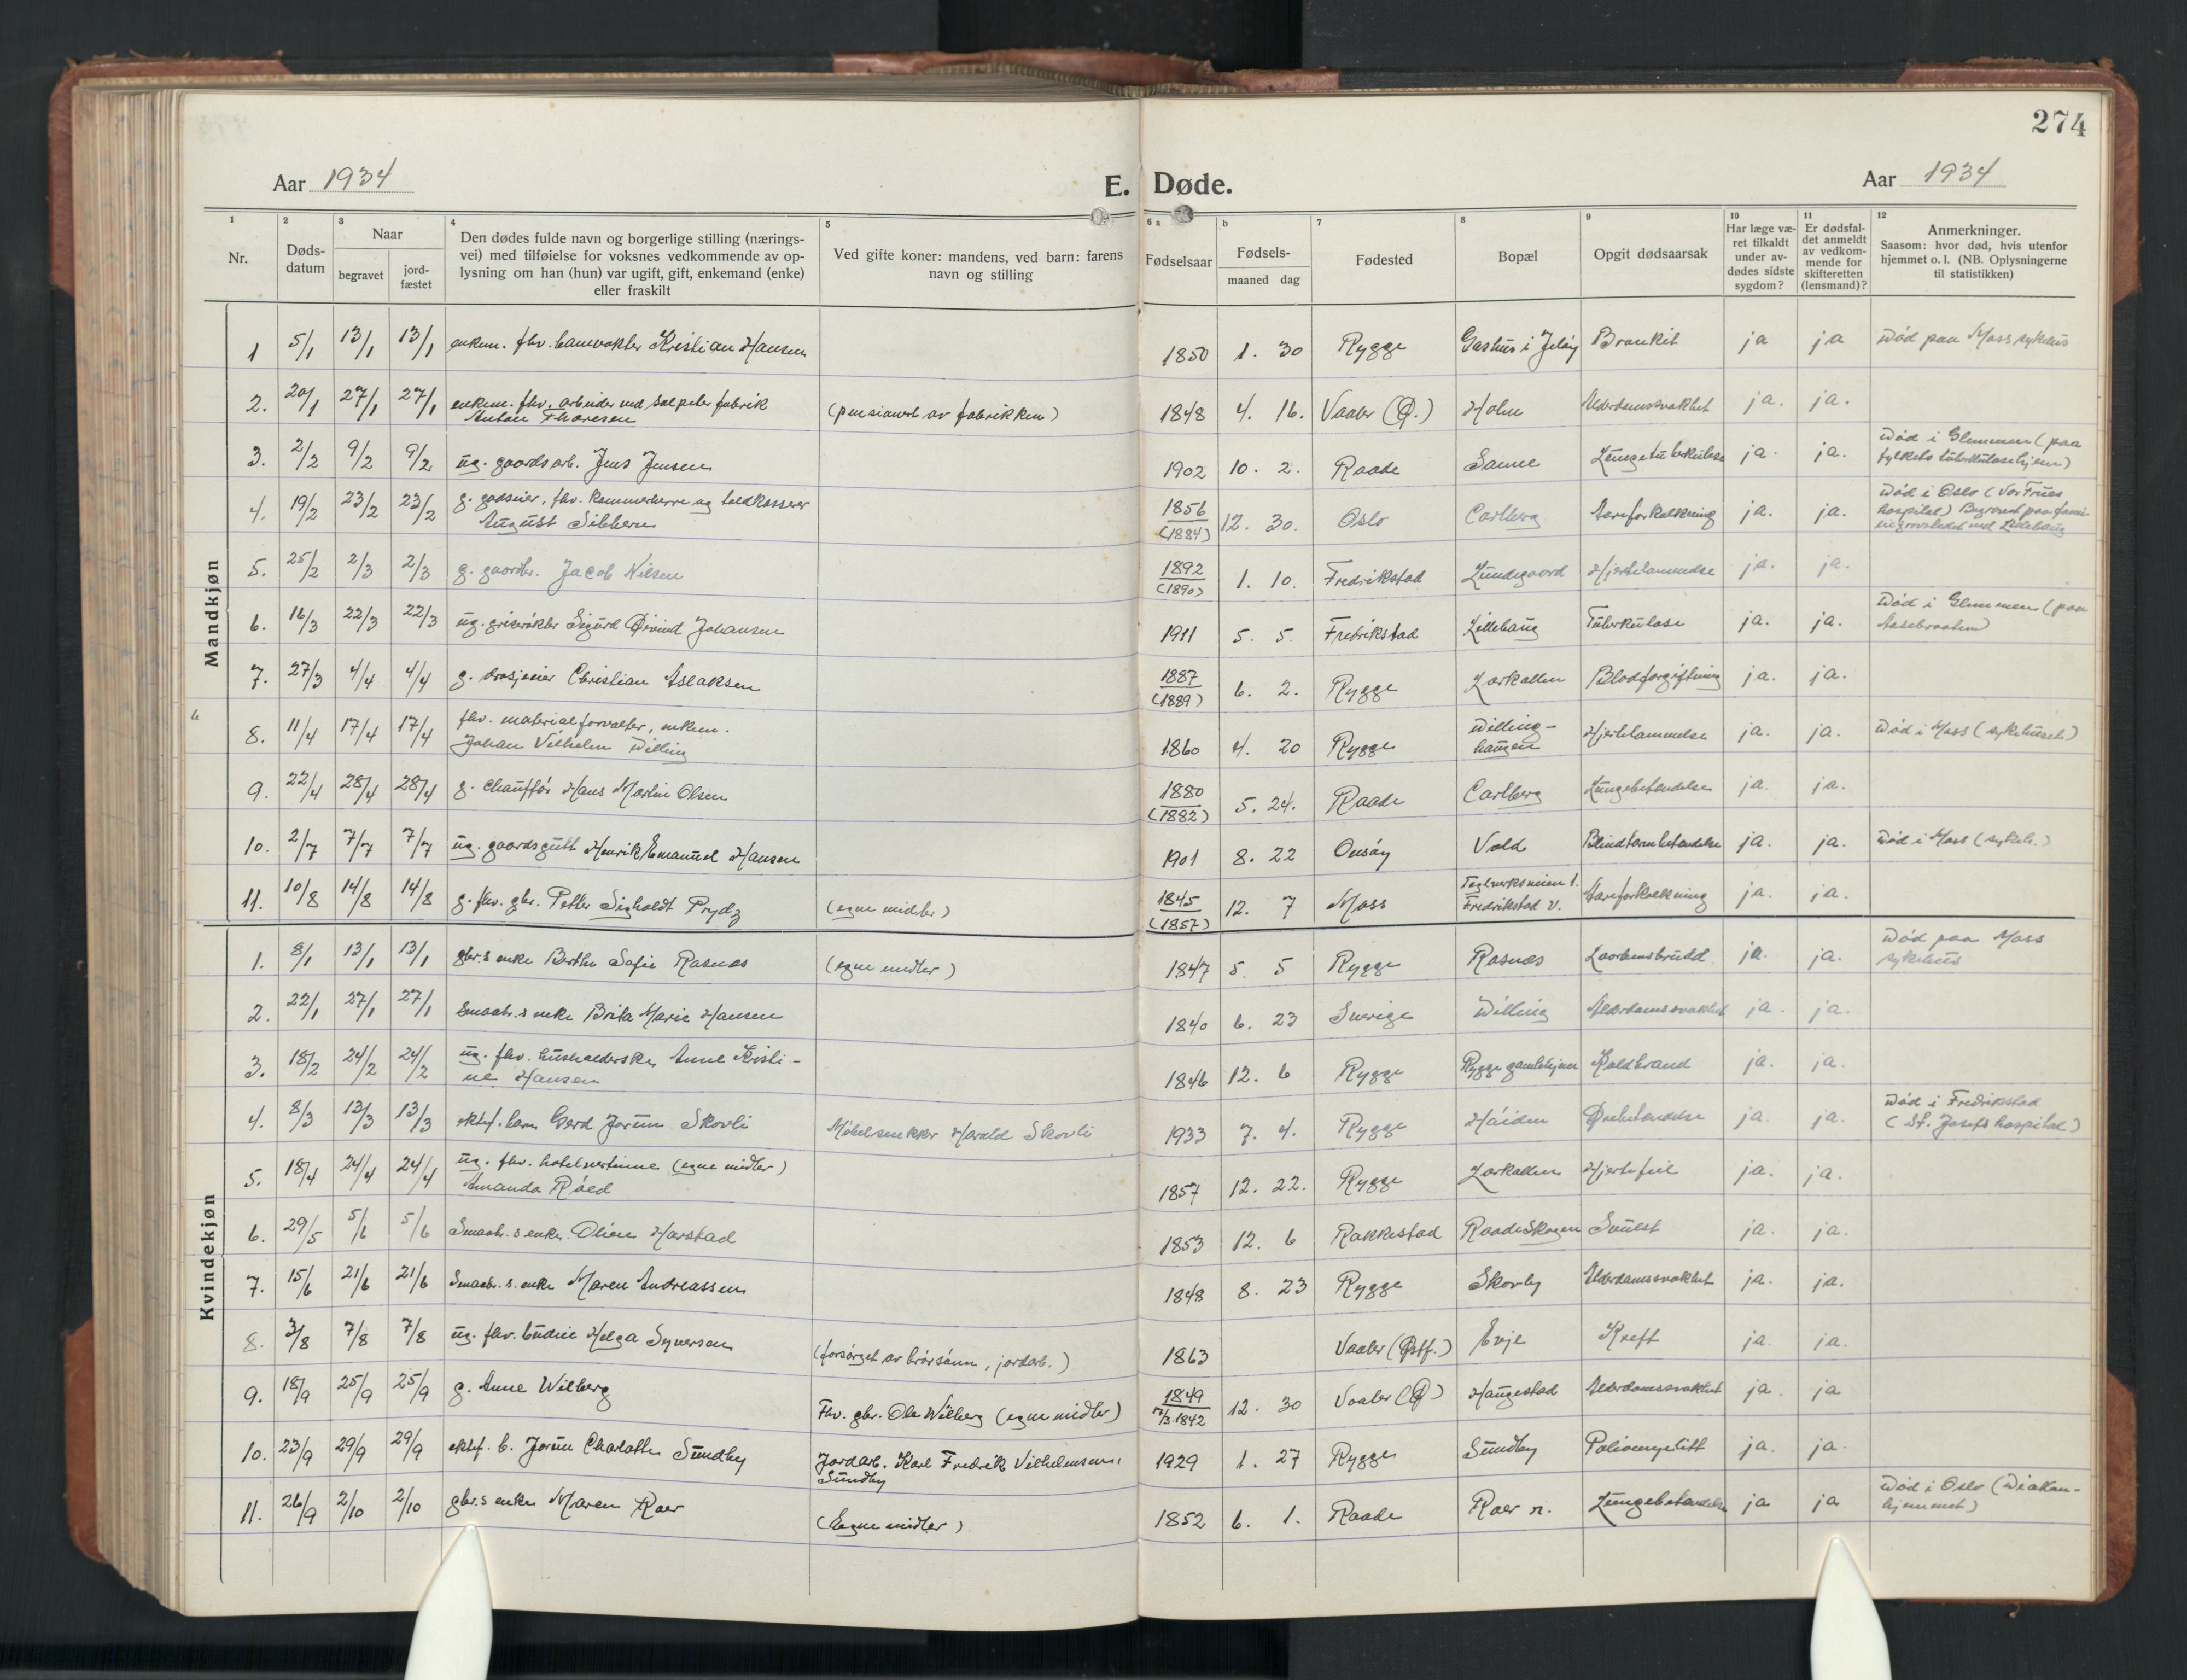 274
Aar 1934
E. Døde.
Aar 1934
1 2 3 4 5 6 a b 7 8 9 10 11 12
Nr.
Døds-
datum
Naar
begravet
jord-
fæstet
Den dødes fulde navn og borgerlige stilling (nærings-
vei) med tilføielse for voksnes vedkommende av op-
lysning om han (hun) var ugift, gift, enkemand (enke)
eller fraskilt
Ved gifte koner: mandens, ved barn: farens
navn og stilling
Fødselsaar
Fødsels-
maaned dag
Fødested
Bopæl
Opgit dødsaarsak
Har læge væ-
ret tilkaldt
under av-
dødes sidste
sygdom?
Er dødsfal-
det anmeldt
av vedkom-
mende for
skifteretten
(lensmand)?
Anmerkninger.
Saasom: hvor død, hvis utenfor
hjemmet o. l. (NB. Oplysningerne
til statistikken)
Mandkjøn
1 5/1 13/1 13/1 enkem. fhv. banevokter Kristian Hansen 1850 1. 30 Rygge Gashus i Jeløy Bronkit ja ja Død paa Moss sykehus
2. 20/1 27/1 27/1 enkem. fhv. arbeider ved salpeterfabrik
Anton Thoresen (pensionert av fabrikken) 1848 4. 16. Vaaler (Ø.) Holm Alderdomssvakhet ja. ja.
3. 2/2 9/2 9/2 ug. gaardsarb. Jens Jensen 1902 10. 2. Raade Sanne Lungetuberkulose ja. ja. Død i Glemmen (paa
fylkets tuberkulosehjem)
4. 19/2 23/2 23/2 g. godseier, fhv. kammerherre og toldkasserer
August Sibbern 1856
(1884) 12. 30. Oslo Carlberg Aareforkalkning ja. ja. Død i Oslo (Vor Frues
hospital) Begravet paa fami-
liegravstedet ved
5. 25/2 2/3 2/3 g. gaardbr. Jacob Nilsen 1892
(1890) 1. 10. Fredrikstad Lundegaard Hjertelammelse ja. ja.
6. 16/3 22/3 22/3 ug. griserøkter Sigurd Øivind Johansen 1911 5. 5. Fredrikstad Lillehaug Tuberkulose ja. ja. Død i Glemmen (paa
Aasebraaten)
7. 27/3 4/4 4/4 g. drosjeeier Christian Aslaksen 1887
(1889) 6. 2. Rygge Larkollen Blodforgiftning ja. ja.
8. 11/4 17/4 17/4 fhv. materialforvalter, enkem.
Johan Vilhelm Dilling 1860 4. 20 Rygge Dilling-
haugen Hjertelammelse ja. ja. Død i Moss (sykehuset)
9. 22/4 28/4 28/4 g. chauffør Hans Martin Olsen 1880
(1882) 5. 24. Raade Carlberg Lungebetendelse ja. ja.
10. 2/7 7/7 7/7 ug. gaardsgutt Henrik Emanuel Hansen 1901 8. 22 Onsøy Vold Blindtarmbetendelse ja. ja. Død i Moss (sykeh.)
11. 10/8 14/8 14/8 g. fhv. gbr. Petter Sigholdt Prydz (egne midler) 1845
(1857) 12. 7 Moss Teglverksveien 1.
Fredrikstad V. Aareforkalkning ja. ja.
Kvindekjøn
1. 8/1 13/1 13/1 gbr.s enke Berthe Sofie Rosnæs (egne midler) 1847 5. 5 Rygge Rosnæs Laarbensbrudd ja. ja. Død paa Moss
sykehus
2. 22/1 27/1 27/1 Smaabr.s enke Brita Marie Hansen 1840 6. 23 Sverige Dilling Alderdomssvakhet ja. ja.
3. 18/2 24/2 24/2 ug. fhv. husholderske Anne Kristi-
ne Hansen 1846 12. 6 Rygge Rygge gamlehjem Koldbrand ja. ja.
4. 8/3 13/3 13/3 ektef. barn Gerd Jorun Skovli Møbelsnekker Harald Skovli 1933 7. 4. Rygge Høiden Ørebetendelse ja. ja. Død i Fredrikstad
(St. Josefs hospital)
5. 18/4 24/4 24/4 ug. fhv. hotelvertinne (egne midler)
Amanda Røed 1857 12. 22. Rygge Larkollen Hjertefeil ja. ja.
6. 29/5 5/6 5/6 Smaabr.s enke Oline Harstad 1853 12. 6 Rakkestad Raadeskogen Svulst ja. ja.
7. 15/6 21/6 21/6 Smaabr.s enke Maren Andreassen 1848 8. 23 Rygge Skovly Alderdomssvakhet ja. ja.
8. 3/8 7/8 7/8 ug. fhv. budeie Helga Syversen (forsørget av brorsønn, jordarb.) 1863 Vaaler (Østf.) Evje Kreft ja. ja.
9. 18/9 25/9 25/9 g. Anne Wilberg Fhv. gbr. Ole Wilberg (egne midler) 1849
1842 12. 30 Vaaler (Ø) Haugestad Alderdomssvakhet ja. ja
10. 23/9 29/9 29/9 ektef. b. Jorun Charlotte Sundby Jordarb. Karl Fredrik Vilhelmsen
Sundby 1929 1. 27 Rygge Sundby Poliomyelitt ja. ja.
11. 26/9 2/10 2/10 gbr.s enke Maren Roer (Egne midler) 1852 6. 1. Raade Roer n. Lungebetendelse ja ja Død i Oslo (Diakon-
hjemmet)